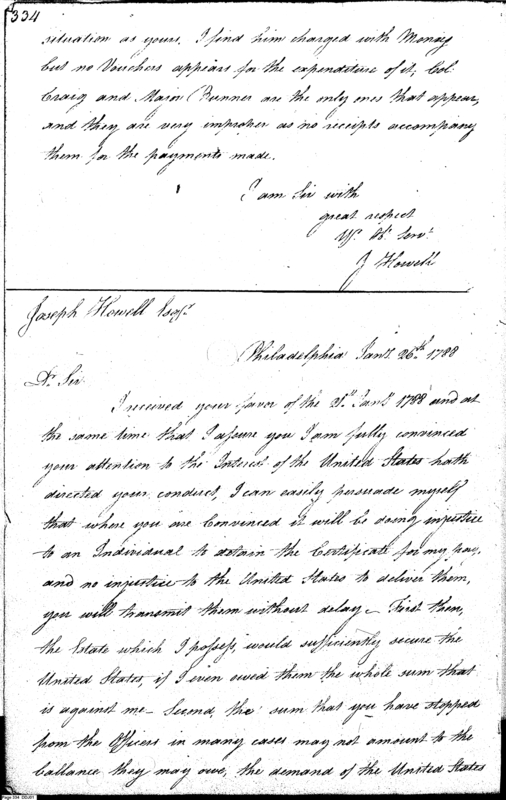 334
situation as yours, I find him charged with Money
but no Vouchers appears for the expenditure of it, Col
Craig and Main Runner are the only ones that appear,
and they are very improper as no receipts accompany
them for the payments made.
I am Sir with
great respect
Yr. Ob. Servt.
J Howell
Joseph Howell Esqr.
Philadelphia Jany. 26th. 1788
Dr. Sir
I received your favor of the 21st. Jany. 1788 and at
the same time that I assure you I am fully convinced
your attention to the Interest of the United States hath
directed your conduct, I can easily persuade myself
that where you are Convinced it will be doing injustice
to an Individual to detain the Certificate for my pay,
and no injustice to the United States to deliver them,
you will transmit them without delay – First then,
the Estate which I possess, would sufficiently secure the
United States, if I even owed them the whole sum that
is against me – Second, the sum that you have stopped
from the Officers in many cases may not amount to the
ballance they may owe, the demand of the United States